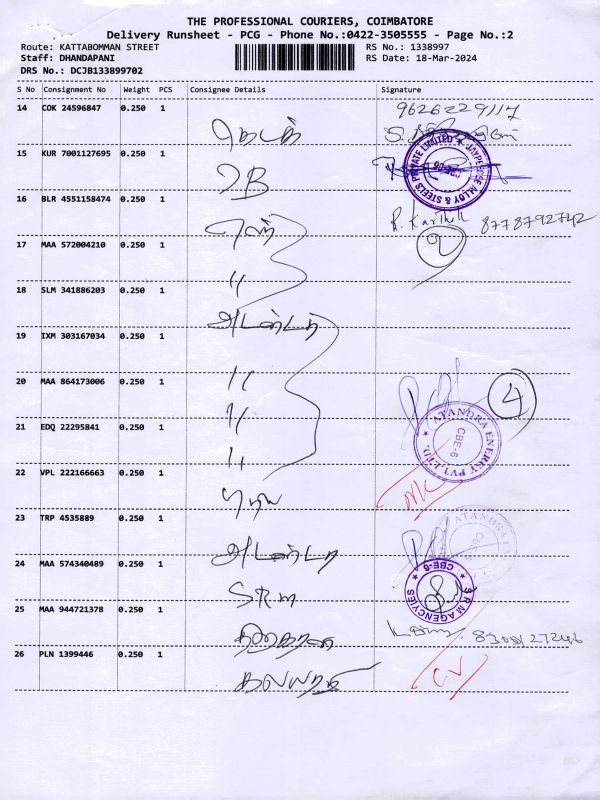 THE PROFESSIONAL COURIERS, COIMBATORE
Delivery Runsheet - PCG - Phone No.:0422-3505555 - Page No.:2
Route: KATTABOMMAN STREET RS No.: 1338997
Staff: DHANDAPANI RS Date: 18-Mar-2024
DRS No.: DCJB133899702
S No Consignment No Weight PCS Consignee Details Signature
14 COK 24596847 0.250 1 9626229117
15 KUR 7001127695 0.250 1 2B JAYPEE ALLOY & STEELS PRIVATE LIMITED
16 BLR 4551158474 0.250 1 R. Karthik 8778792742
17 MAA 572004210 0.250 1 " 2
18 SLM 341886203 0.250 1 அடண்டர
19 IXM 303167034 0.250 1 "
20 MAA 864173006 0.250 1 " 4
21 EDQ 22295841 0.250 1 " ATANDRA ENERGY PVT.LTD. CBE-6
22 VPL 222166663 0.250 1 NK
23 TRP 4535889 0.250 1 அடண்டர ATANDRA CBE-6
24 MAA 574340489 0.250 1 SRM S R M AGENCYIES CBE-6
25 MAA 944721378 0.250 1
26 PLN 1399446 0.250 1 CV